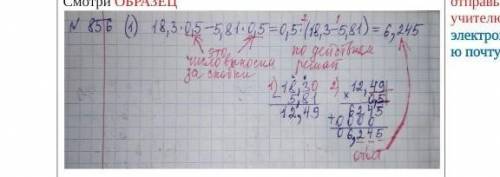 Смотри ОБРАЗЕЦ
№ 856 (1) 18,3·0,5−5,81·0,5=0,5·(18,3−5,81)=6,245
2 1
это число выносим за скобки
по действиям решат
1) 18,30
− 5,81
12,49
2) 12,49
× 0,5
6245
+ 0000
06,245
ответ
отправь
учителю
электрон
ю почту